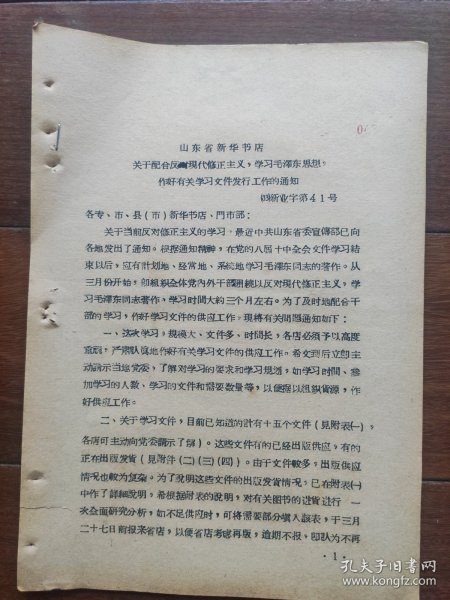 山东省新华书店
关于配合反对现代修正主义，学习毛泽东思想，
作好有关学习文件发行工作的通知
新业字第41号
各专、市、县（市）新华书店、门市部：
关于当前反对修正主义的学习，最近中共山东省委宣传部已向
各地发出了通知。根据通知精神，在党的八届十中全会文件学习结
束以后，应有计划地、经常地、系统地学习毛泽东同志的著作。从
三月份开始，即组织全体党内外干部继续以反对现代修正主义，学
习毛泽东同志著作，学习时间大约三个月左右。为了及时地配合干
部的学习，作好学习文件的供应工作，现将有关问题通知如下：
一、这次学习，规模大、文件多、时间长，各店必须予以高度
重视，严肃认真地作好有关学习文件的供应工作。希文到后立即主
动请示当地党委，了解对学习的要求和学习规划，如学习时间、参
加学习的人数、学习的文件和需要数量等，以便据以组织货源，作
好供应工作。
二、关于学习文件，目前已知道的计有十五个文件（见附表㈠，
各店可主动向党委请示了解）。这些文件有的已经出版供应，有的
正在出版发货（见附件（二）（三）（四）。由于文件较多，出版供应
情况也较为复杂。为了说明这些文件的出版发货情况，已在附表㈠
中作了详细说明，希根据附表的说明，对有关图书的进货进行一
次全面研究分析，如不足供应时，可将需要部分填入该表，于三月
二十七日前报来省店，以便省店考虑再版，逾期不报，即认为不再
·1·
孔夫子旧书网